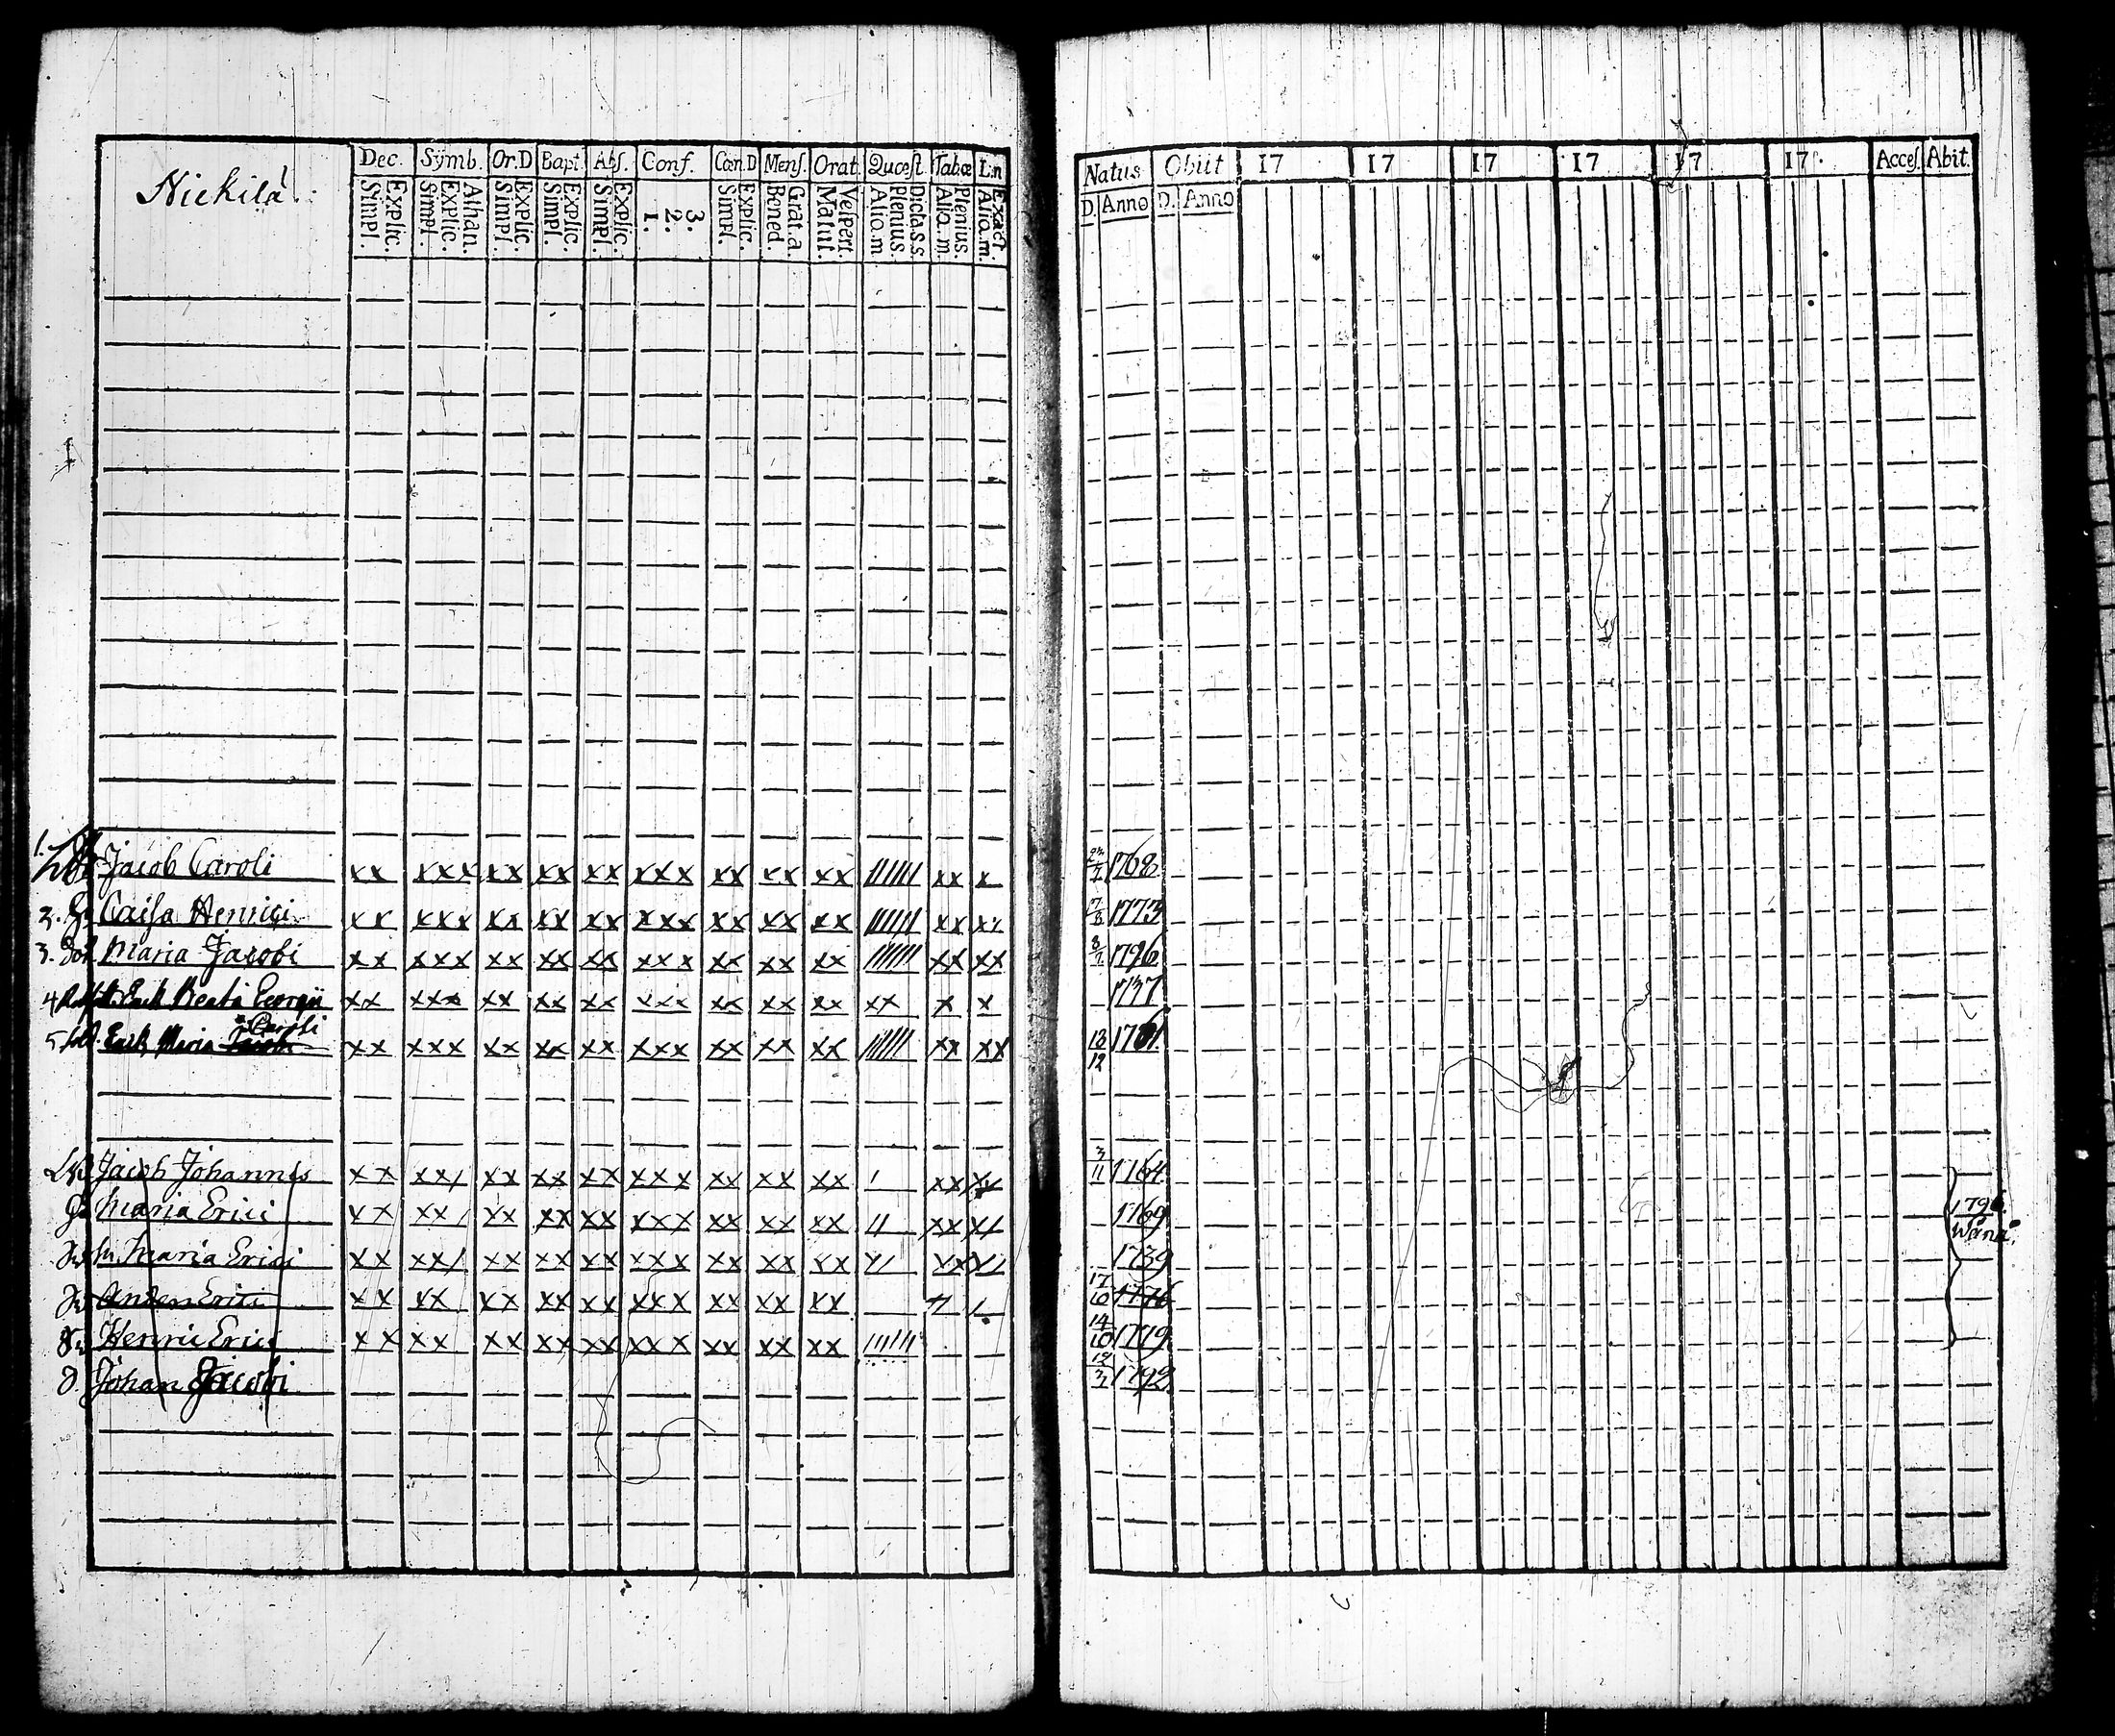 Nickilä
Dec. Symb. Or.D Bapt. Abs. Conf. Cœn.D Mens. Orat. Quæst. Tabæ Lin
Explic. Simpl. Athan. Explic. Simpl. Explic. Simpl. Explic. Simpl. Explic. Simpl. 3. 2. 1. Explic. Simpl. Grat.a. Bened. Vespert. Matut. Dicta.s.s. Plenius. Alio.m Plenius. Alio.m. Exact. Alio.m.
1. Jacob Caroli xx xxx xx xx xx xxx xx xx xx ////// xx x
2. Caisa Henrici xx xxx xx xx xx xxx xx xx xx ////// xx xx
3. Maria Jacobi xx xxx xx xx xx xxx xx xx xx ////// xx xx
4 Beata Georgii xx xxx xx xx xx xxx xx xx xx xx x x
Caroli
5 Maria xx xxx xx xx xx xxx xx xx xx ////// xx xx
Jacob Johannis xx xx/ xx xx xx xxx xx xx xx / xx
Maria Erici xx xx/ xx xx xx xxx xx xx xx // xx
Maria Erici xx xx/ xx xx xx xxx xx xx xx
Anders Erici xx xx xx xx xx xxx xx xx xx
Henric Erici xx xx xx xx xx xxx xx xx xx //////
Johan Jacobi
Natus Obiit 17 17 17 17 17 17 Acces. Abit.
D. Anno D. Anno
1768
1773
8/7 1796
1737
18/12 1761
3/11 1764
1769
1739
17/10 1776
14/10 1779
12/3 1792
1796
Wånå.